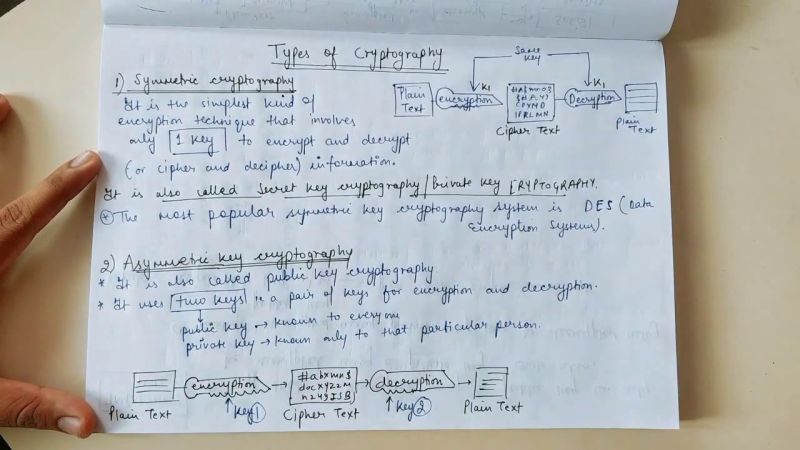 Types of Cryptography
1) Symmetric cryptography
It is the simplest kind of
encryption technique that involves
only 1 key to encrypt and decrypt
(or cipher and decipher) information.
Same
key
Plain
Text
encryption
K1
#a$mno$
Cipher Text
Decryption
K1
Plain
Text
It is also called Secret key cryptography/Private key CRYPTOGRAPHY.
* The most popular symmetric key cryptography system is DES (Data
Encryption Systems).
2) Asymmetric key cryptography
* It is also called public key cryptography
* It uses two keys i.e a pair of keys for encryption and decryption.
public key → known to everyone
private key → known only to that particular person.
Plain Text
encryption
↑ key 1
#abxmn$
docxyzzM
n24yISB
Cipher Text
decryption
↑ key 2
Plain Text